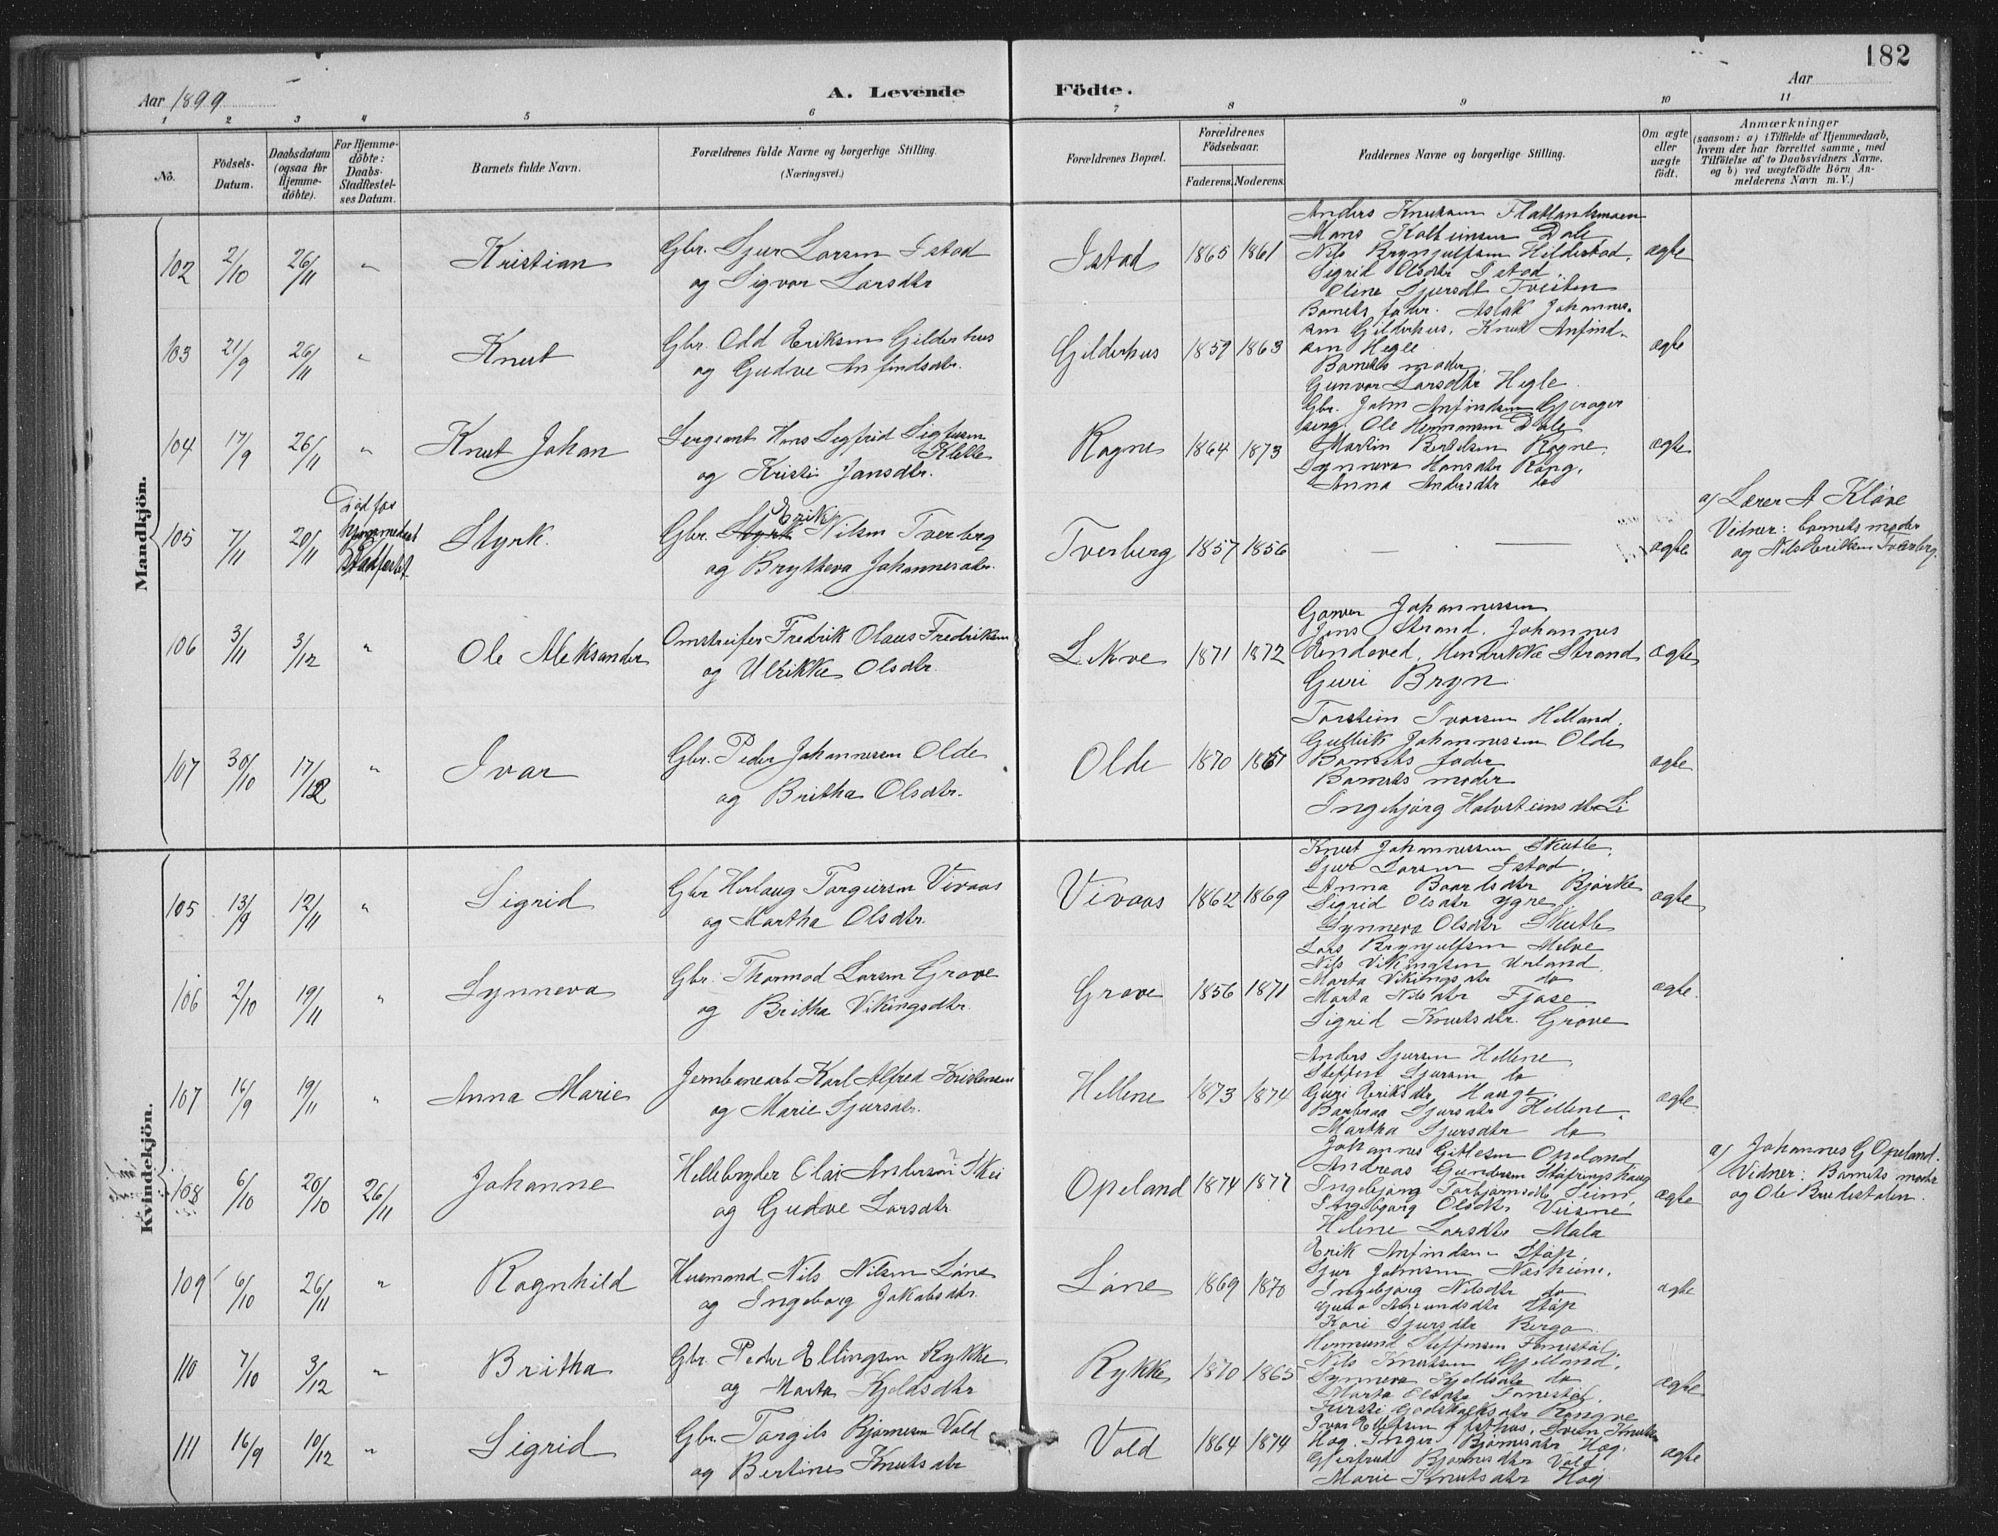 182
Aar 1899
A. Levende Födte.
Aar
1 2 3 4 5 6 7 8 9 10 11
No.
Födsels-Datum.
Daabsdatum (ogsaa for Hjemmedöbte).
For Hjemmedöbte: Daabs-Stadfestelses Datum.
Barnets fulde Navn.
Forældrenes fulde Navne og borgerlige Stilling. (Næringsvei.)
Forældrenes Bopæl.
Forældrenes Födselsaar.
Faderens. Moderens.
Faddernes Navne og borgerlige Stilling.
Om ægte eller uægte födt.
Anmærkninger
(saasom: a) i Tilfælde af Hjemmedaab, hvem der har forrettet samme, med Tilföielse af to Daabsvidners Navne. og b) ved uægtefödte Börn Anmelderens Navn m. V.)
Mandkjön.
102 2/10 26/11 " Kristian
Gbr. Sjur Larsen Istad
og Sigvor Larsdtr
Istad 1865 1861
Anders Knutsen Flatlandsmoen
Mons Kolbeinsen Dale
Nils Brynjulfsen Hildestad.
Sigrid Olsdtr Istad.
Oline Sjursdt Tveiten
ægte
103 21/9 26/11 " Knut
Gbr. Odd Eriksen Gilderhus
og Gudve Anfindsdtr.
Gilderhus 1859 1863
Barnets fader. Aslak Johannes-
sen Gilderhus. Knut Anfind-
sen Hegle.
Barnets moder
Gunvor Larsdtr Hegle.
ægte
104 17/9 26/11 " Knut Johan
Sergeant Hans Segfrid Sigfusen
Klette
og Kristi Jansdtr.
Rogne 1864 1873
Gbr. John Anfindsen Gjerager
Ole Hermansen Dale
Martin Bertelsen Rogne.
Synneva Hansdtr Rong.
Anna Andersdtr do
ægte
105 7/11 20/11 Død før
Hjemmedaab
Stadfestet
Styrk.
Gbr. Styrk Erik Nilsen Tverberg
og Brytheva Johannesdtr.
Tverberg 1857 1856 — — ægte
a) Lærer A Kløve
Vidner: barnets moder
og Nils Eriksen Tverberg.
106 3/11 3/12 " Ole Aleksander
Omstreifer Fredrik Olaus Fredriksen
og Ulrikke Olsdtr.
Lekve 1871 1872
Johannessen
Jens Strand. Johannes
Rendeved. Henrikke Strand
Guri Bryn
ægte
107 30/10 17/12 " Ivar
Gbr. Peder Johannesen Olde
og Britha Olsdtr.
Olde 1870 1867
Torstein Ivarsen Helland.
Gullik Johannessen Olde
Barnets fader
Barnets moder
Ingebjørg Halvsteinsdtr Li
ægte
Kvindekjön.
105 13/9 12/11 " Sigrid
Gbr Herlaug Torgeirsen Vivaas
og Martha Olsdtr.
Vivaas 1862 1869
Knut Johannessen Skutle.
Sjur Larsen Istad
Anna Baardsdtr Bjørke
Sigrid Olsdtr Ygre.
Synneva Olsdtr Skutle
ægte
106 2/10 19/11 " Synneva
Gbr. Thormod Larsen Grove
og Britha Vikingsdtr.
Grove 1856 1871
Lars Brynjulfsen Mølve
Nils Vikingsen Urland.
Marta Vikingsdtr do
Marta Nilsdtr Fjose
Sigrid Knutsdtr. Grove
ægte.
107 16/9 19/11 " Anna Marie
Jernbanearb Karl Alfred Kristensen
og Marie Sjursdtr.
Hellene 1873 1874
Anders Sjursen Hellene.
Steffen Sjursen do
Guri Eriksdtr, Hauge
Barbraa Sjursdtr Hellene.
Martha Sjursdtr do
ægte
108 6/10 20/10 26/11 Johanne
Hellebryder Olai Andersen Skei
og Gudve Larsdtr.
Opeland 1874 1877
Johannes Gitlesen Opeland
Andreas Gundersen
Ingebjørg Torbjørnsdtr Seim.
Ingebjørg Olsdtr Veisene
Helene Larsdtr Mala
ægte
a) Johannes G Opeland.
Vidner: Barnets moder
og Ole Bredestølen.
109 6/10 26/11 " Ragnhild
Husmand Nils Nilsen Løne
og Ingeborg Jakobsdtr.
Løne 1869 1870
Erik Anfindsen Støp.
Sjur Johnsen Næsheim.
Ingebjørg Nilsdtr do
Amundsdtr Støp
Kari Sjursdtr Berge
ægte
110 7/10 3/12 " Britha
Gbr. Peder Ellingsen Rykke
og Marta Kjeldsdtr
Rykke 1870 1865
Hermund Steffensen Fenestøl.
Nils Knutsen Gjelland.
Synneva Kjeldsdtr do
Marta Olsdtr Fenestøl
Kirsti Godskalksdtr Rongve
ægte
111 16/9 10/12 " Sigrid
Gbr. Torgils Bjørnesen Vold
og Bertine Knutsdtr
Vold 1864 1874
Ivar Ellefsen Svein Knutsen
Hog. Inger Bjørnesdtr Hog.
Gjertrud Bjørnesdtr Vold
Marie Knutsdtr Hog
ægte